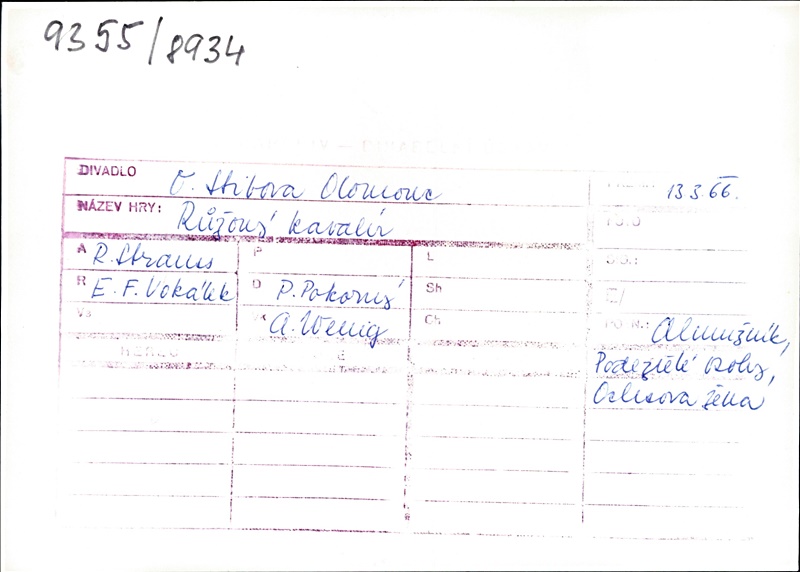 9355/8934
DIVADLO O. Stibora Olomouc 13 3. 66.
NÁZEV HRY: Růžový kavalír
A R. Strauss P L
R E. F. Vokálek D P. Pokorný Sh
Vs K A. Wenig Ch Almužník,
Podezřelé osoby,
žena